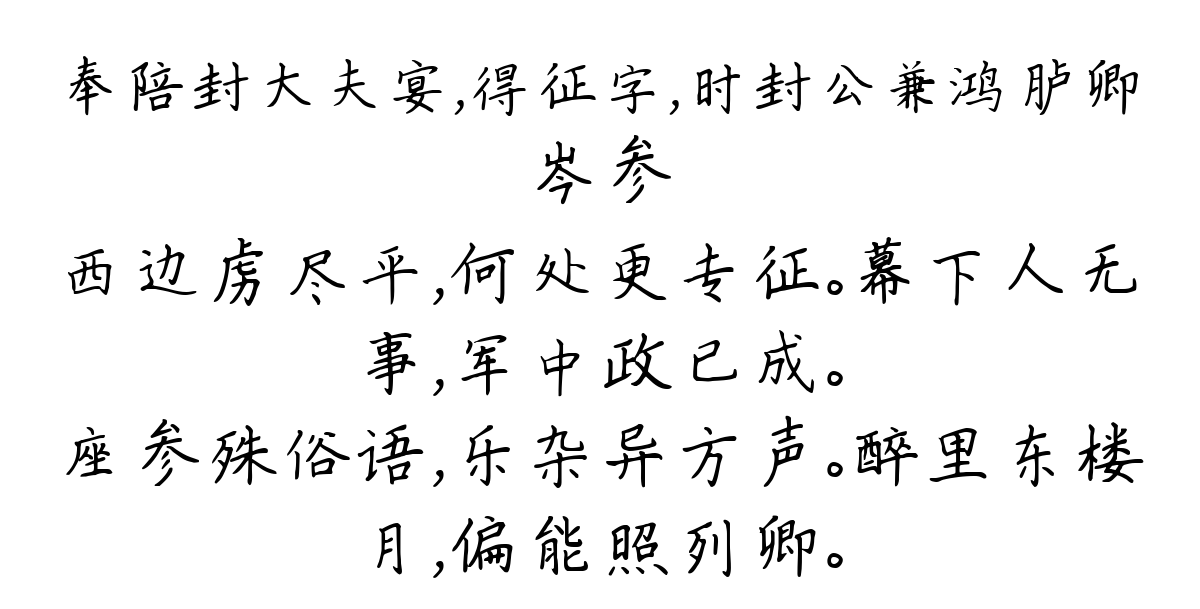 奉陪封大夫宴,得征字,时封公兼鸿胪卿
岑参
西边虏尽平,何处更专征。幕下人无
事,军中政已成。
座参殊俗语,乐杂异方声。醉里东楼
月,偏能照列卿。